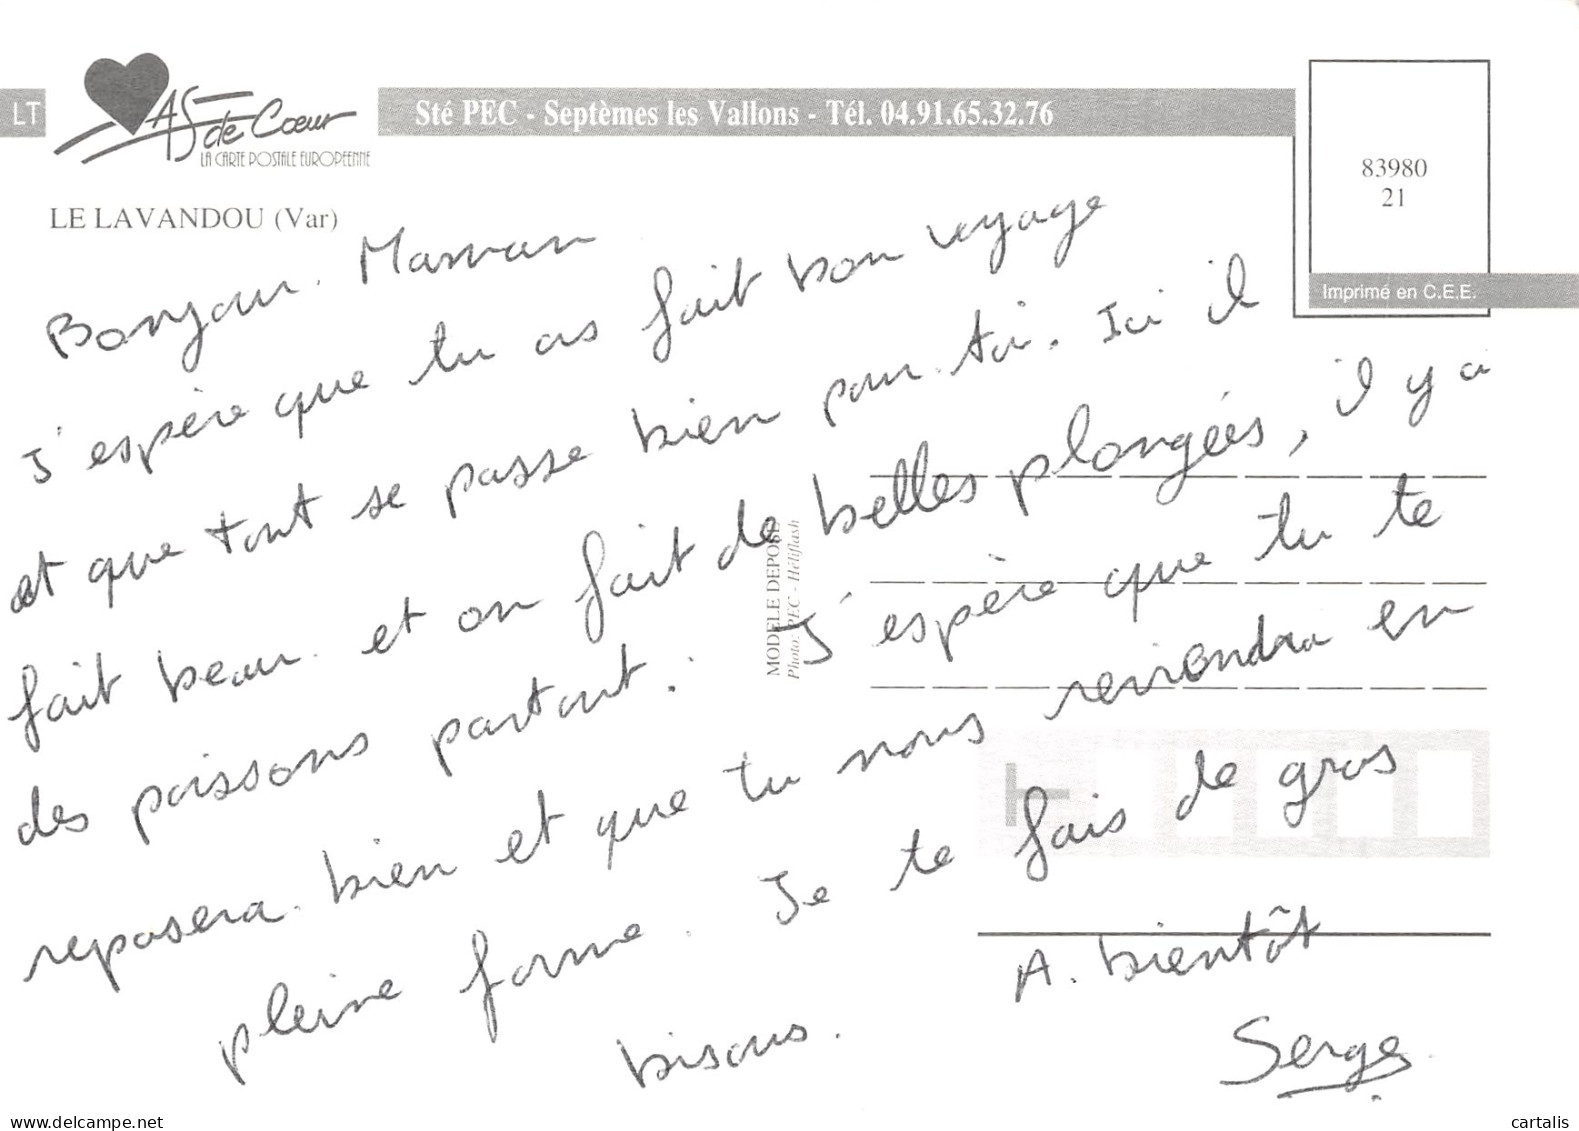 LT
AS de Cœur
LA CARTE POSTALE EUROPÉENNE
Sté PEC - Septèmes les Vallons - Tél. 04.91.65.32.76
83980
21
Imprimé en C.E.E.
LE LAVANDOU (Var)
MODELE DEPOSE
Photo: PEC - Héliflash
Bonjour Maman
J'espère que tu as fait bon voyage
et que tout se passe bien pour toi. Ici il
fait beau et on fait de belles plongées, il y a
des poissons partout. J'espère que tu te
reposera bien et que tu nous reviendra en
pleine forme. Je te fais de gros
bisous.
A bientôt
Serge
delcampe.net
cartalis